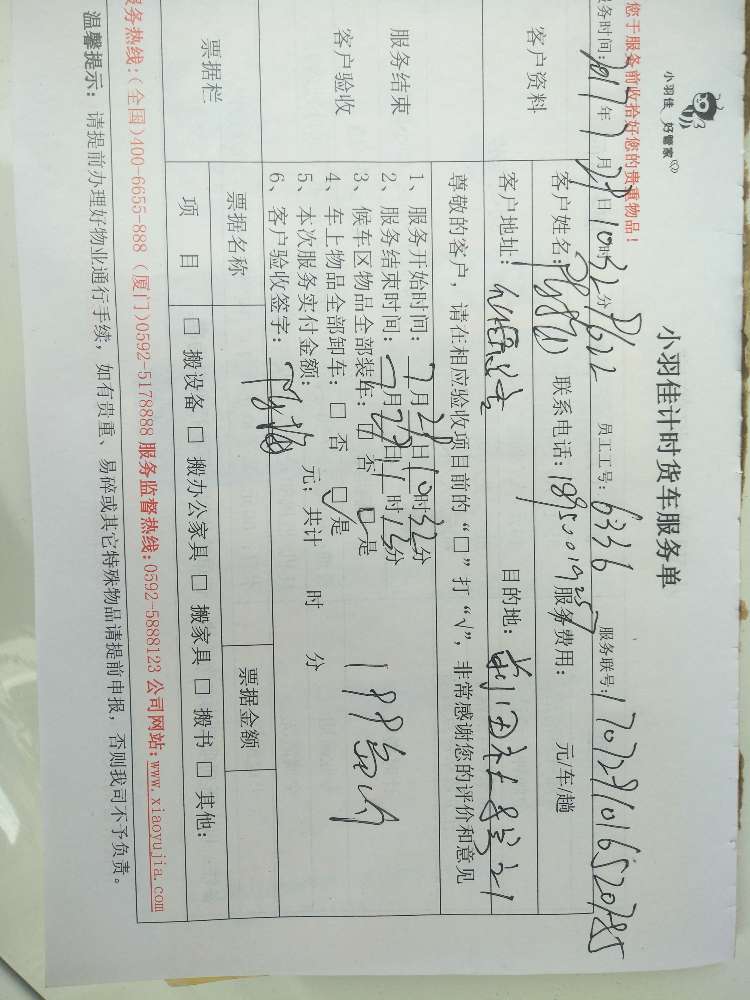 小羽佳 好管家
小羽佳计时货车服务单
您于服务前收拾好您的贵重物品!
务时间: 2017年7月29日10时32分 员工工号: 6336 服务联号: 1707291016520785
客户资料
客户姓名: 联系电话: 服务费用: 元/车/趟
客户地址: 目的地:
服务结束
客户验收
尊敬的客户,请在相应验收项目前的“□”打“√”,非常感谢您的评价和意见
1、服务开始时间: 7月29日10时32分
2、服务结束时间: 7月29日11时12分
3、候车区物品全部装车: □ 否 □ 是
4、车上物品全部卸车: □ 否 □ 是
5、本次服务实付金额: 元; 共计 时 分
6、客户验收签字:
票据栏
票据名称 票据金额
项 目 □ 搬设备 □ 搬办公家具 □ 搬家具 □ 搬书 □ 其他:
服务热线:(全国)400-6655-888 (厦门)0592-5178888 服务监督热线:0592-5888123 公司网站:www.xiaoyujia.com
温馨提示: 请提前办理好物业通行手续, 如有贵重、易碎或其它特殊物品请提前申报, 否则我司不予负责。